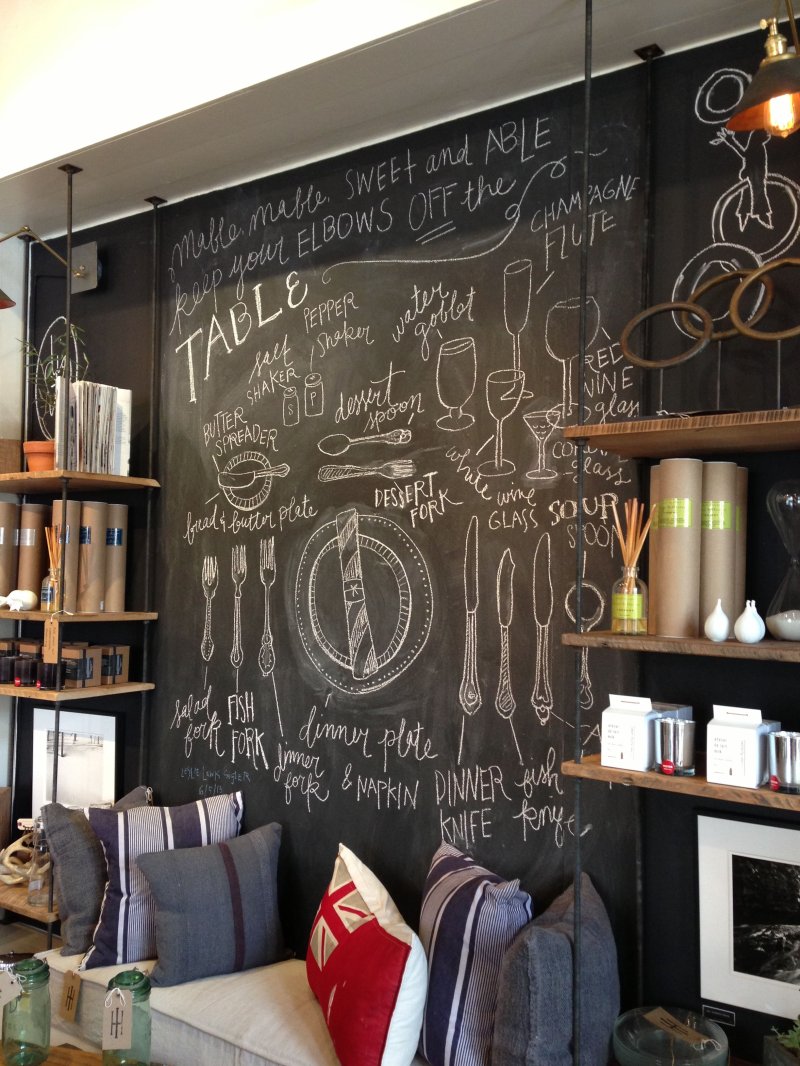 mable, mable, SWEET and ABLE
keep your ELBOWS OFF the
TABLE
CHAMPAGNE
FLUTE
PEPPER
shaker
water
goblet
salt
SHAKER
RED
WINE
glass
S
P
dessert
spoon
BUTTER
SPREADER
white wine
GLASS
glass
bread & butter plate
DESSERT
FORK
SOUP
SPOON
salad
fork
FISH
FORK
dinner
fork
dinner plate
& NAPKIN
DINNER
KNIFE
fish
knife
6/5/13